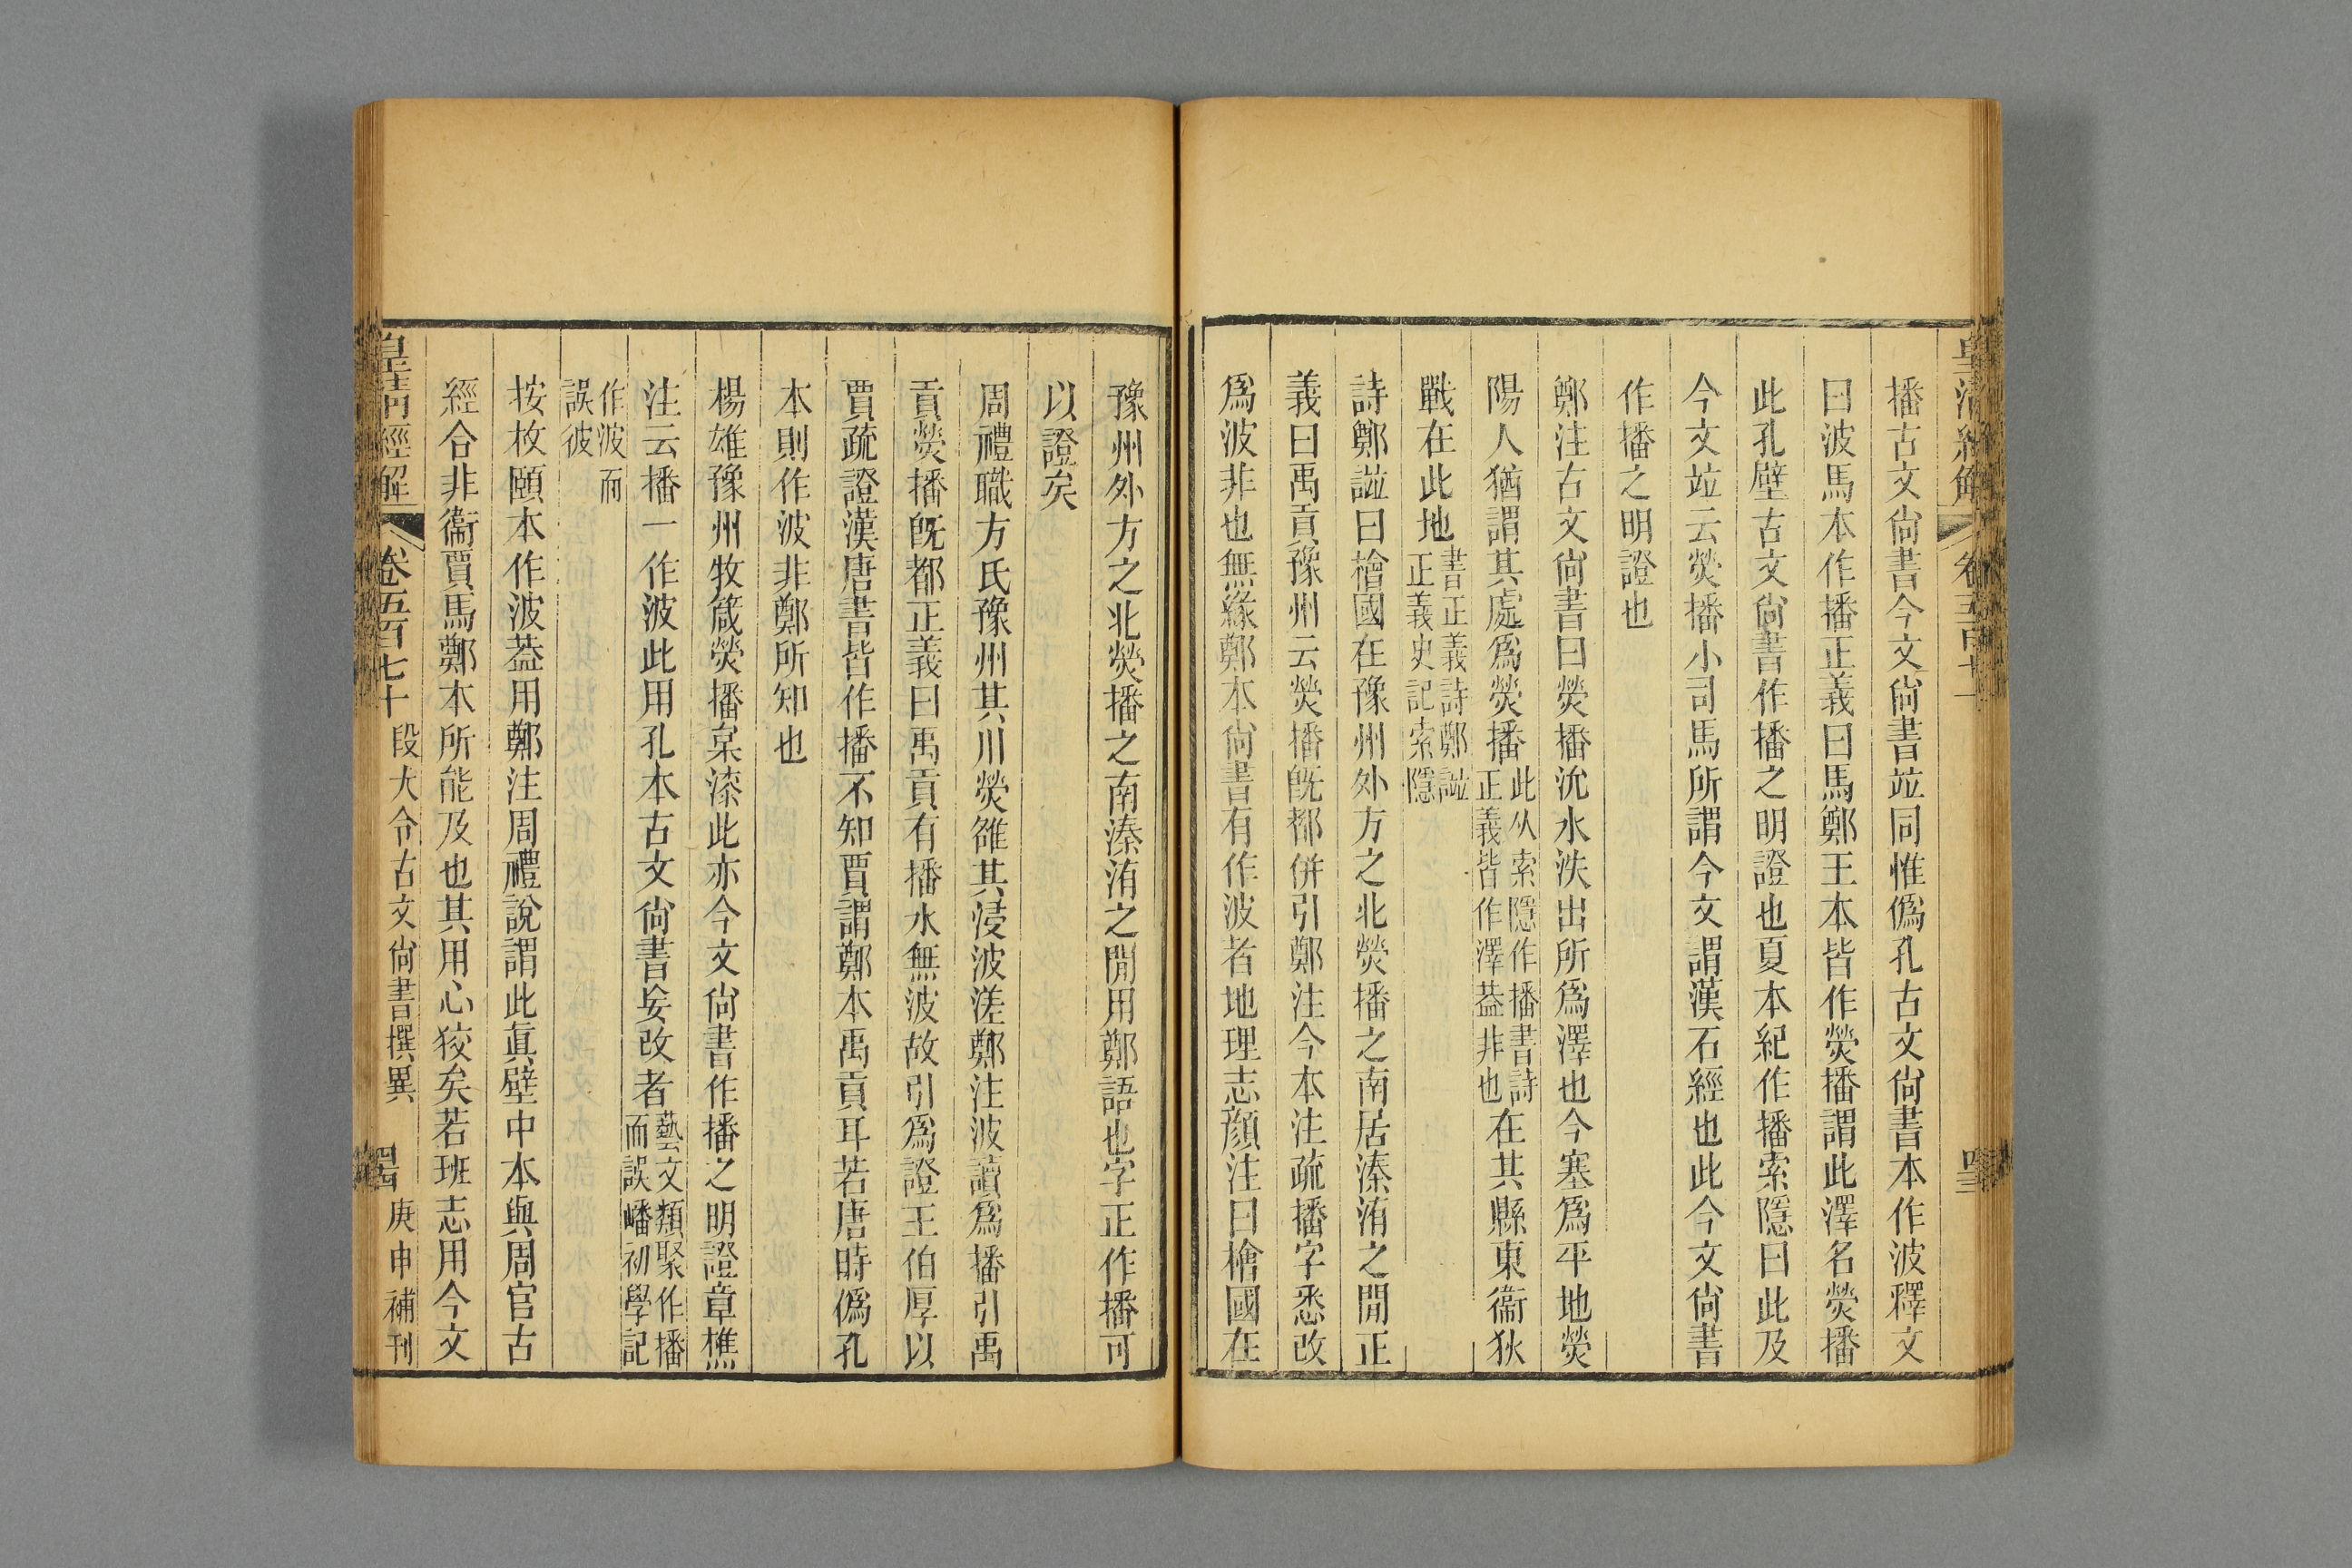 播古文尙書今文尙書竝同惟僞孔古文尙書本作波釋文
曰波馬本作播正義曰馬鄭王本皆作熒播謂此澤名熒播
此孔壁古文尙書作播之明證也夏本紀作播索隱曰此及
今文竝云熒播小司馬所謂今文謂漢石經也此今文尙書
作播之明證也
鄭注古文尙書曰熒播沇水泆出所爲澤也今塞爲平地熒
陽人猶謂其處爲熒播此从索隱作播書詩正義皆作澤葢非也在其縣東衞狄
戰在此地書正義詩鄭譜正義史記索隱
詩鄭譜曰檜國在豫州外方之北熒播之南居溱洧之閒正
義曰禹貢豫州云熒播旣都併引鄭注今本注疏播字悉改
爲波非也無緣鄭本尙書有作波者地理志顏注曰檜國在
豫州外方之北熒播之南溱洧之閒用鄭語也字正作播可
以證矣
周禮職方氏豫州其川熒雒其浸波溠鄭注波讀爲播引禹
貢熒播旣都正義曰禹貢有播水無波故引爲證王伯厚以
賈疏證漢唐書皆作播不知賈謂鄭本禹貢耳若唐時僞孔
本則作波非鄭所知也
楊雄豫州牧箴熒播枲漆此亦今文尙書作播之明證章樵
注云播一作波此用孔本古文尙書妄改者藝文類聚作播而誤皤初學記
作波而誤彼
按枚頤本作波葢用鄭注周禮說謂此眞壁中本與周官古
經合非衞賈馬鄭本所能及也其用心狡矣若班志用今文
皇淸經解 卷五百七十 段大令古文尙書撰異 庚申補刊